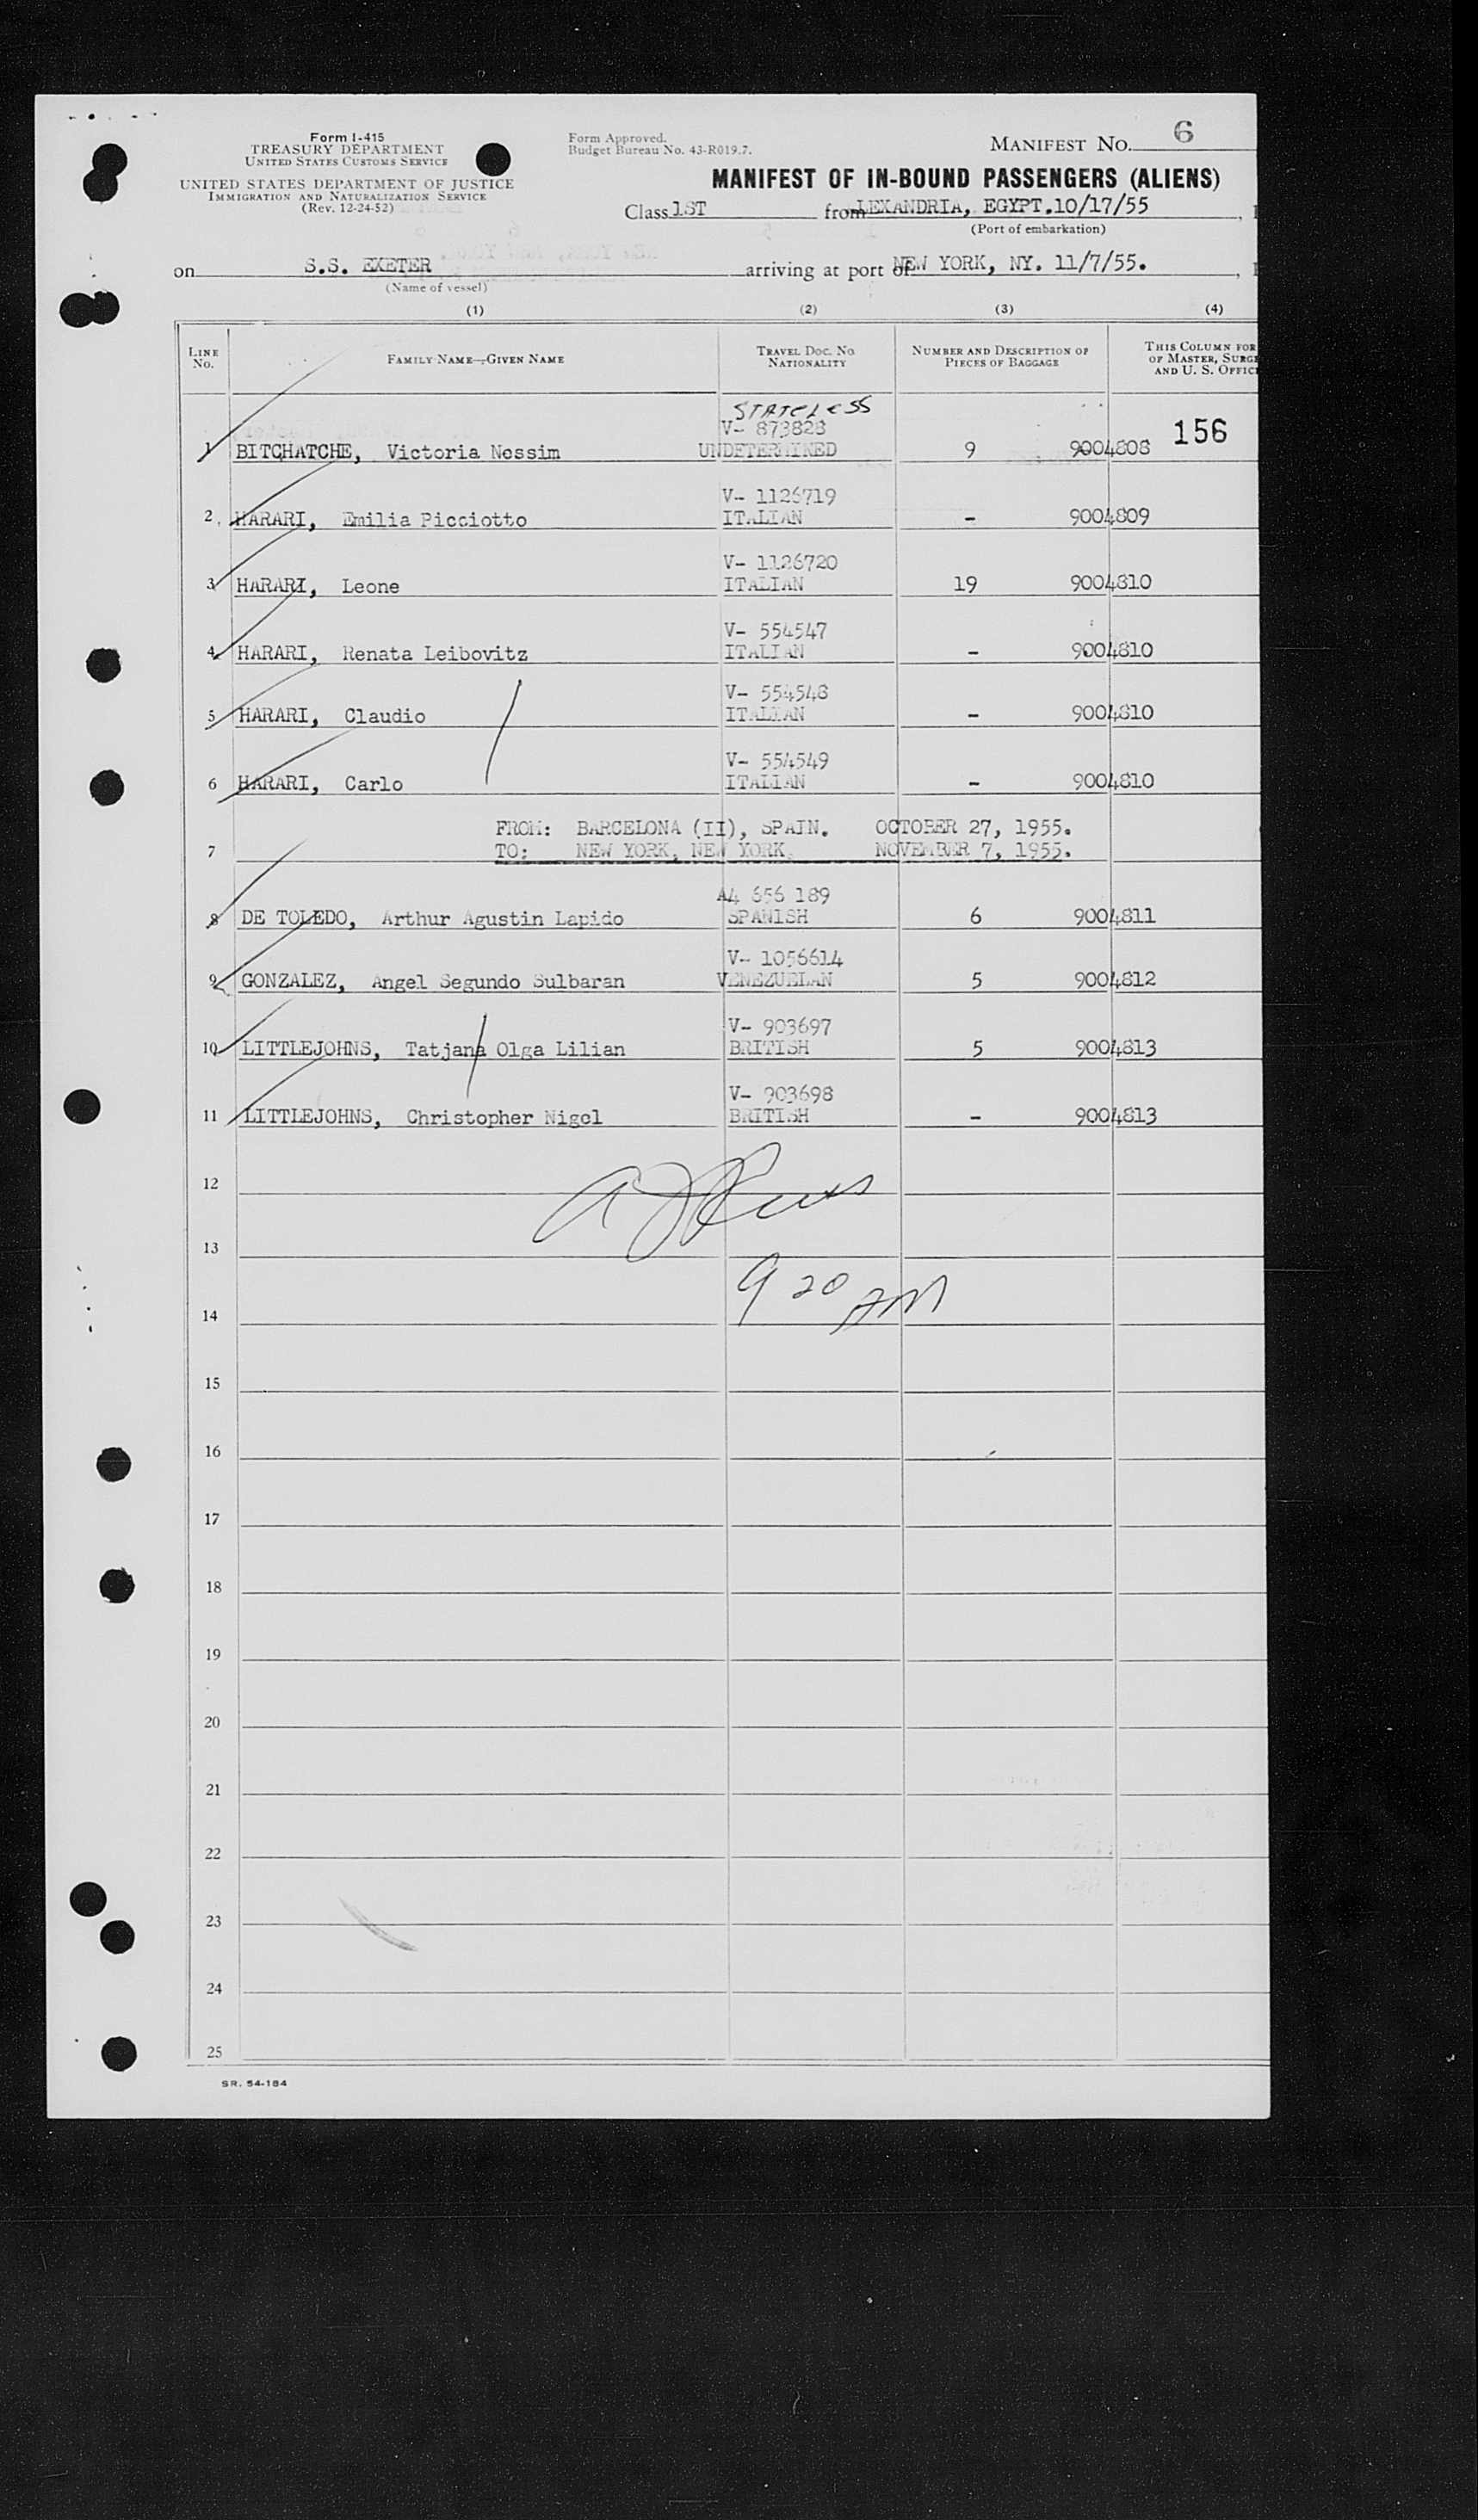 Form I-415
TREASURY DEPARTMENT
UNITED STATES CUSTOMS SERVICE
UNITED STATES DEPARTMENT OF JUSTICE
IMMIGRATION AND NATURALIZATION SERVICE
(Rev. 12-24-52)
Form Approved.
Budget Bureau No. 43-R019.7.
MANIFEST No. 6
MANIFEST OF IN-BOUND PASSENGERS (ALIENS)
Class 1ST from LEXANDRIA, EGYPT.10/17/55
(Port of embarkation)
on S.S. EXETER arriving at port of NEW YORK, NY. 11/7/55.
(Name of vessel)
(1) (2) (3) (4)
LINE No. FAMILY NAME—GIVEN NAME TRAVEL DOC. NO. NATIONALITY NUMBER AND DESCRIPTION OF PIECES OF BAGGAGE THIS COLUMN FOR OF MASTER, SURGE AND U. S. OFFIC
STATELESS
V- 873828 156
1 BITCHATCHE, Victoria Nessim UNDETERMINED 9 9004808
V- 1126719
2 HARARI, Emilia Picciotto ITALIAN - 9004809
V- 1126720
3 HARARI, Leone ITALIAN 19 9004810
V- 554547
4 HARARI, Renata Leibovitz ITALIAN - 9004810
V- 554548
5 HARARI, Claudio ITALIAN - 9004810
V- 554549
6 HARARI, Carlo ITALIAN - 9004810
FROM: BARCELONA (II), SPAIN. OCTOBER 27, 1955.
7 TO: NEW YORK, NEW YORK. NOVEMBER 7, 1955.
A4 656 189
8 DE TOLEDO, Arthur Agustin Lapido SPANISH 6 9004811
V- 1056614
9 GONZALEZ, Angel Segundo Sulbaran VENEZUELAN 5 9004812
V- 903697
10 LITTLEJOHNS, Tatjana Olga Lilian BRITISH 5 9004813
V- 903698
11 LITTLEJOHNS, Christopher Nigel BRITISH - 9004813
12
13
9 20 AM
14
15
16
17
18
19
20
21
22
23
24
25
SR. 54-184